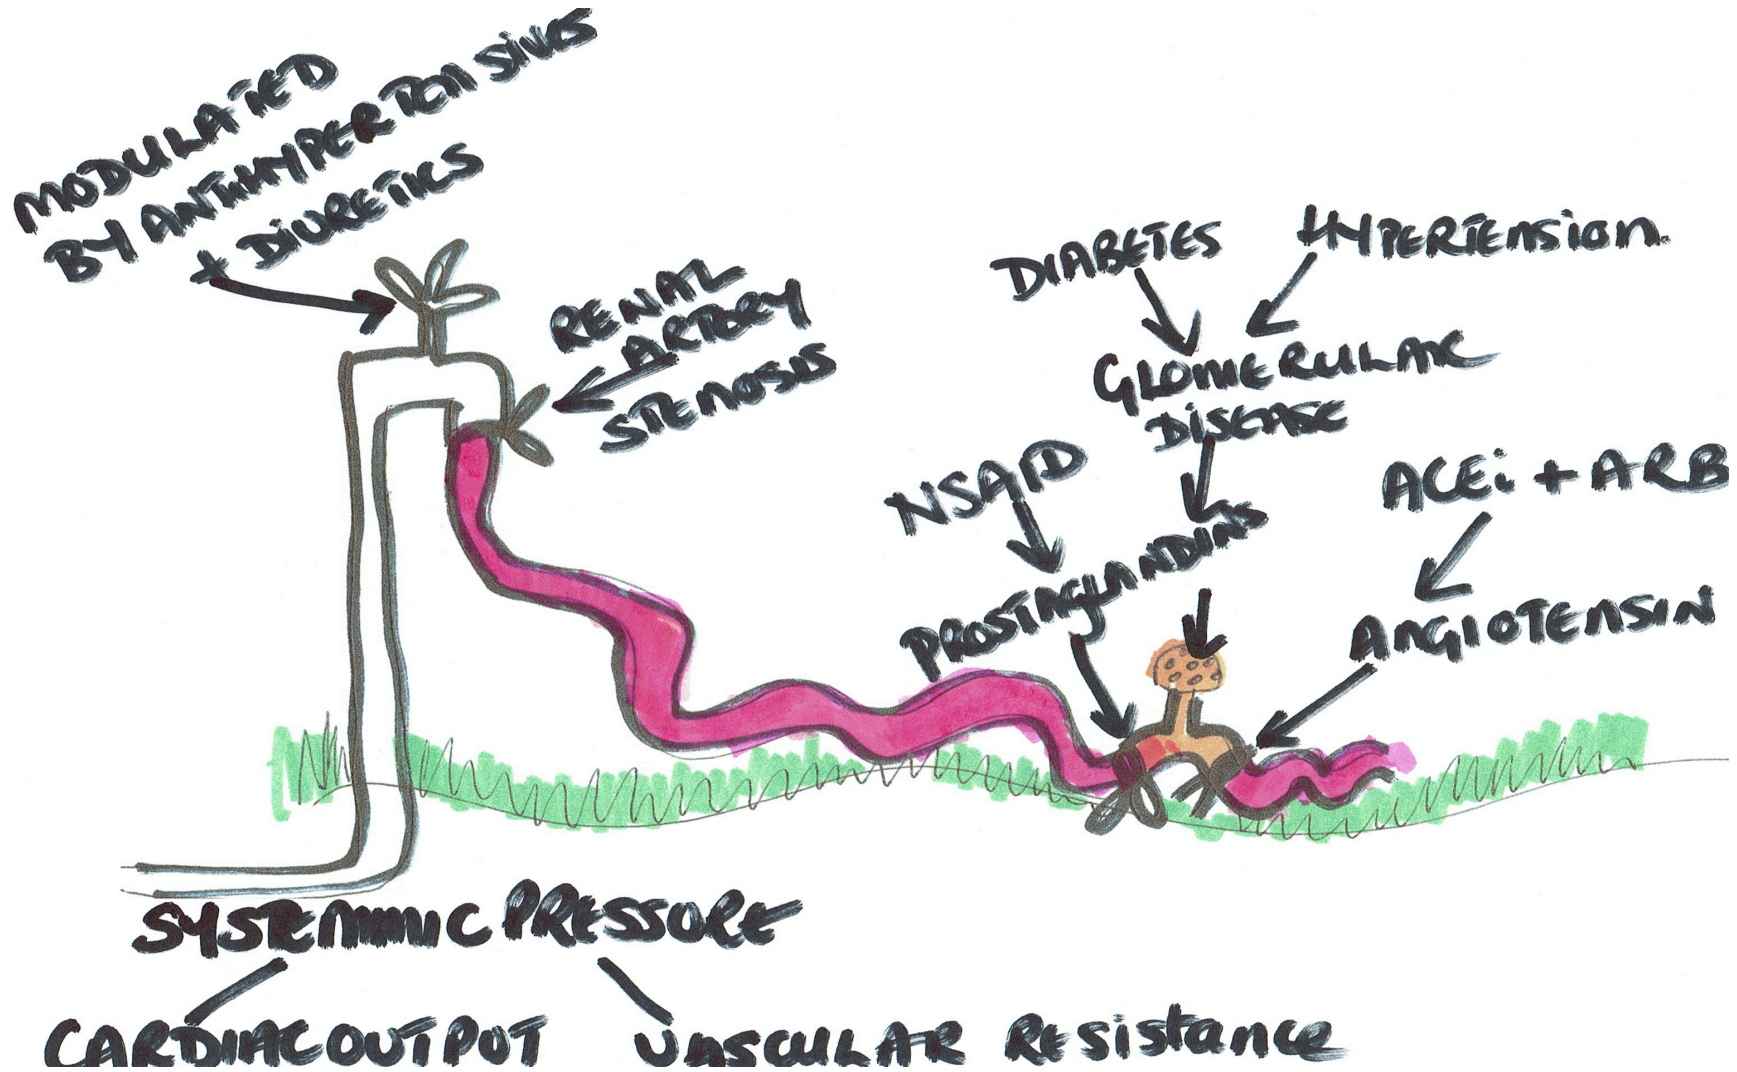 MODULATED
BY ANTIHYPERTENSIVES
+ DIURETICS
RENAL
ARTERY
STENOSIS
DIABETES
HYPERTENSION
GLOMERULAR
DISEASE
NSAID
PROSTAGLANDINS
ACEi + ARB
ANGIOTENSIN
SYSTEMMIC PRESSURE
CARDIAC OUTPUT
VASCULAR RESISTANCE